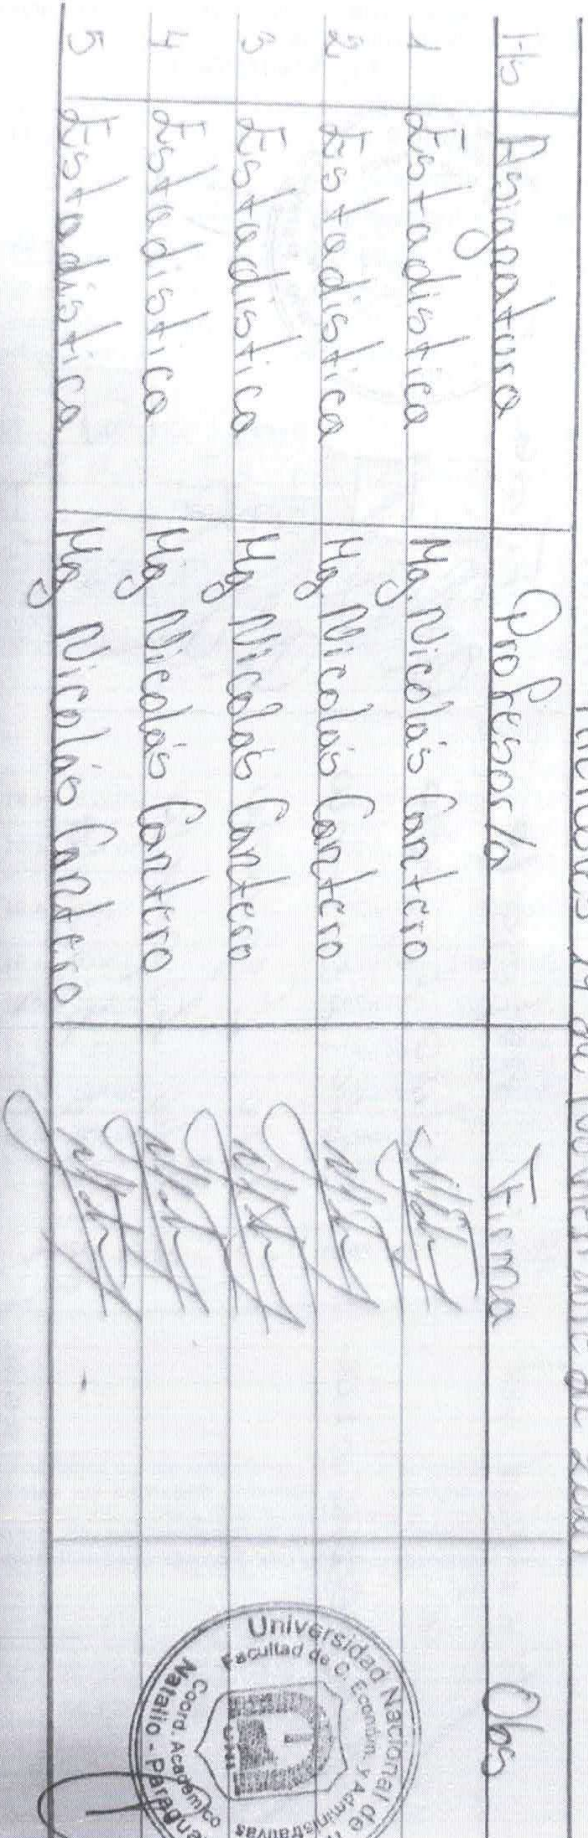 de Noviembre de
Hs Asignatura Profesor/a Firma Obs
1 Estadistica Mg. Nicolás Cantero
2 Estadistica Mg Nicolás Cantero
3 Estadistica Mg Nicolás Cantero
4 Estadistica Mg Nicolás Cantero
5 Estadistica Mg Nicolás Cantero
Universidad Nacional de
Facultad de C. Económ. y Administrativas
UNI
Coord. Académico
Natalio - Paraguay